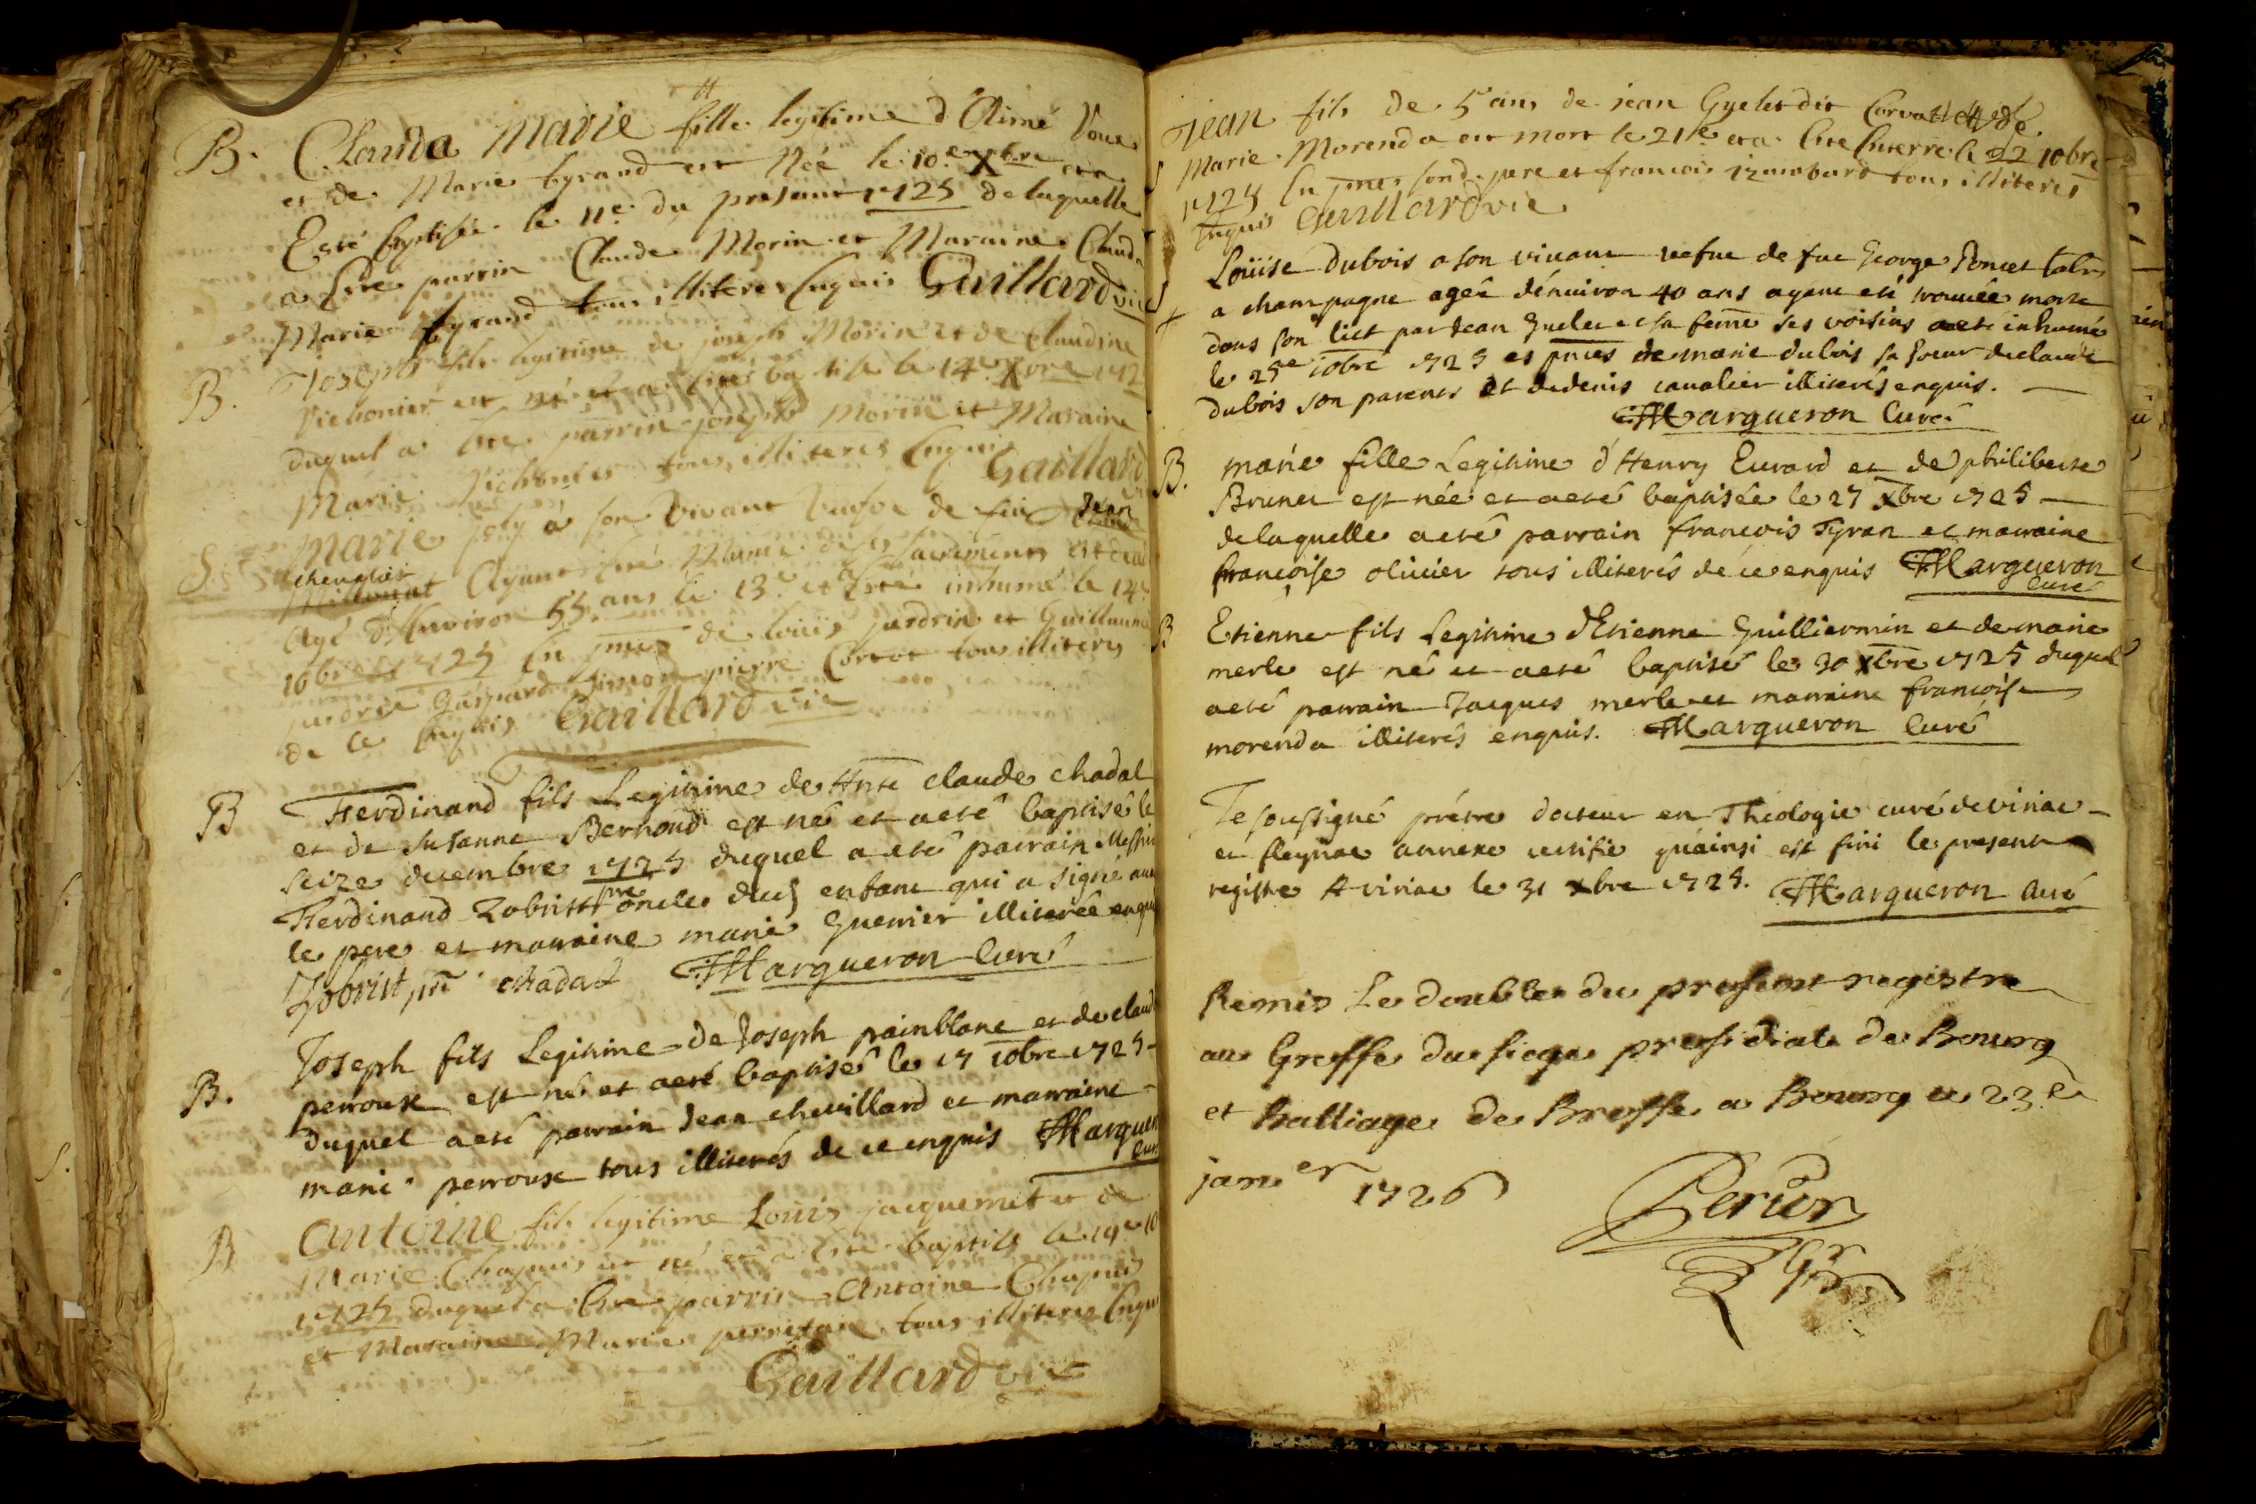 B. Clauda Marie fille legitime d'Aimé Voux
et de Marie tyrand est Née le 10e Xbre et a
Esté baptisée le 11e du presant 1725 de laquelle
a Ete parrin Claude Morin et Maraine Clauda
Marie tyrand tous illiteres Enquis Gaillard vic
B. Joseph fils legitime de joseph Morin et de Claudine
Vichonier est né et a Ete batisé le 14e Xbre 172
duquel a Ete parrin joseph Morin et Maraine
Marie Vichonier tous illiteres Enquis Gaillard
Marie joly a son Vivant Veufve de feu Jean
chevalier Ayant Eté Munie des Sacrements
Agé d'Environ 55 ans le 13e et Ete inhumé le 14e
10bre 1725 En pnces de Louis jurdrin et Guillaume
jurdrin Gaspard simon pierre Cortot tous illiteres
de ce Enquis Gaillard vic
B Ferdinand fils Legitime de Hnte claude chadal
et de susanne Bernoud est né et aeté baptisé le
seize decembre 1725 duquel a eté parrain Messire
Ferdinand Zobrist pre oncle dud enfant qui a signé avec
le pere et marraine marie Guerrier illiterée enquis
Zobrist, pre chadal Margueron Curé
B. Joseph fils Legitime de Joseph painblanc et de claud
perrouse est né et aeté baptisé le 17 10bre 1725
duquel aeté parrain Jean chevillard et marraine
marie perrouse tous illiterés de ce enquis Margueron
Curé
B Antoine fils legitime Louis jacquemet et de
Marie Chapuis est né et a Ete baptisé le 19e 10
1725 duquel a Ete parrin Antoine Chapuis
et Maraine Marie perretan tous illiteres Enquis
Gaillard vic
Jean fils de 5 ans de jean Gyelet dit Corvat et de
Marie Morenda est mort le 21e et a Ete Enterre le 22 10bre
1725 En pnces sond. pere et francois tous illiteres
Enquis Gaillard vic
Loüise Dubois a son vivant vefue de feu George Poncet
a champagne ageé d'enuiron 40 ans ayant eté trouuée morte
dans son lict par Jean Guelet et sa femme ses voisins aeté inhumé
le 25e 10bre 1725 es pnces de marie dubois sa soeur de claude
dubois son parent et de denis caualier illiterés enquis.
Margueron Curé
B. marie fille Legitime d'Henry Eurard et de philiberte
Brunet est née et aeté baptisée le 27 Xbre 1725
de laquelle aeté parrain francois Tyran et marraine
françoise oliuier tous illiterés de ce enquis Margueron
Curé
B Etienne fils Legitime d'Etienne Guilliermin et de marie
merle est né et aeté baptisé le 30 Xbre 1725 duquel
aeté parrain Jacques merle et marraine françoise
morenda illiterés enquis. Margueron Curé
Je soussigné prétre docteur en Theologie curé de viriac
et fleyriac annexe certifie qu'ainsi est fini le present
registre A viriac le 31 xbre 1725. Margueron Curé
Remis Le double du present registre
au Greffe du siege presidial de Bourg
et balliage de Bresse a Bourg ce 23e
janer 1726
Perier
Gr